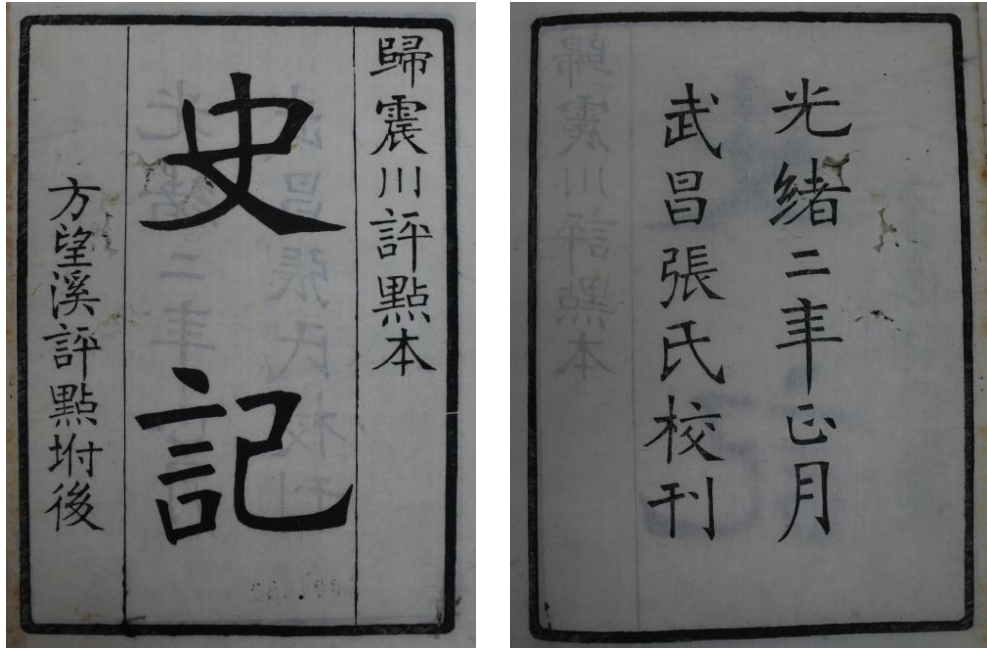 歸震川評點本
史記
方望溪評點坿後
光緒二年正月
武昌張氏校刊